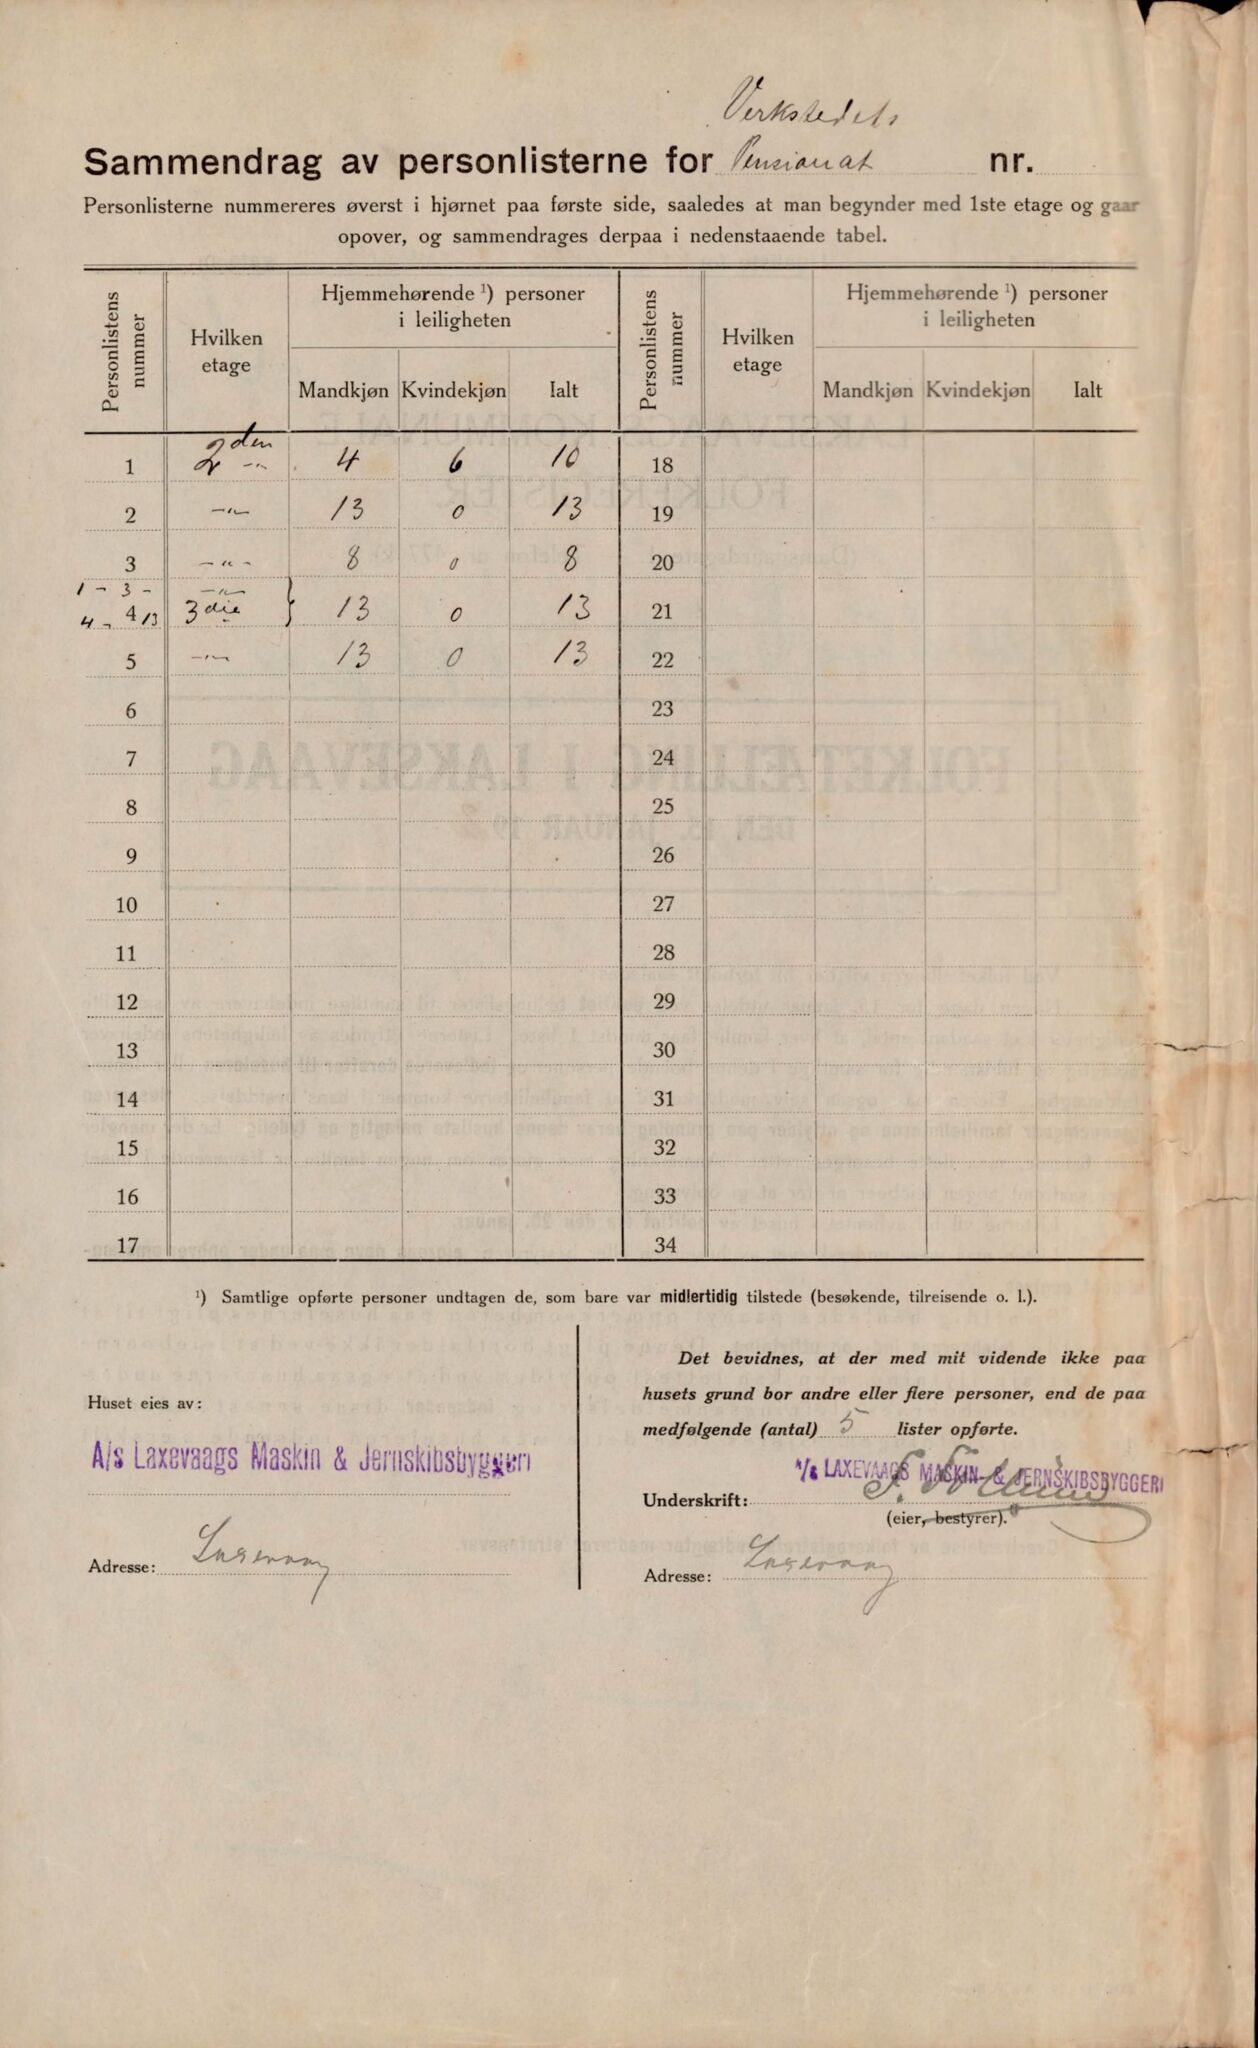 Verkstedets
Sammendrag av personlisterne for Pensionat nr.
Personlisterne nummereres øverst i hjørnet paa første side, saaledes at man begynder med 1ste etage og gaar
opover, og sammendrages derpaa i nedenstaaende tabel.
Personlistens nummer
Hvilken etage
Hjemmehørende ¹) personer i leiligheten
Mandkjøn Kvindekjøn Ialt
Personlistens nummer
Hvilken etage
Hjemmehørende ¹) personer i leiligheten
Mandkjøn Kvindekjøn Ialt
1 2den -"- 4 6 10 18
2 -"- 13 0 13 19
3 -"- 8 0 8 20
1 - 3 - -"-
4 - 13 4 3die } 13 0 13 21
5 -"- 13 0 13 22
6 23
7 24
8 25
9 26
10 27
11 28
12 29
13 30
14 31
15 32
16 33
17 34
¹) Samtlige opførte personer undtagen de, som bare var midlertidig tilstede (besøkende, tilreisende o. l.).
Huset eies av:
A/s Laxevaags Maskin & Jernskibsbyggeri
Adresse: Laxevaag
Det bevidnes, at der med mit vidende ikke paa
husets grund bor andre eller flere personer, end de paa
medfølgende (antal) 5 lister opførte.
A/s LAXEVAAGS MASKIN- & JERNSKIBSBYGGERI
Underskrift:
(eier, bestyrer).
Adresse: Laxevaag